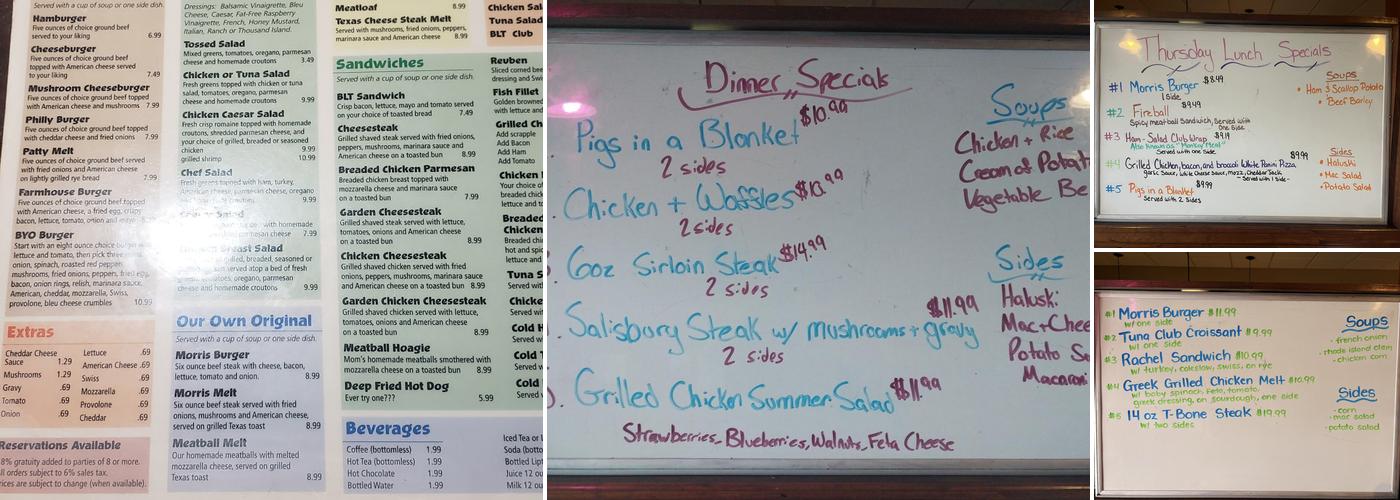 Served with a cup of soup or one side dish.
Hamburger
Five ounces of choice ground beef
served to your liking 6.99
Cheeseburger
Five ounces of choice ground beef
topped with American cheese served
to your liking 7.49
Mushroom Cheeseburger
Five ounces of choice ground beef topped
with American cheese and mushrooms 7.99
Philly Burger
Five ounces of choice ground beef topped
with cheddar cheese and fried onions 7.99
Patty Melt
Five ounces of choice ground beef served
with fried onions and American cheese
on lightly grilled rye bread 7.99
Farmhouse Burger
Five ounces of choice ground beef topped
with American cheese, a fried egg, crispy
bacon, lettuce, tomato, onion and
BYO Burger
Start with an eight ounce choice burger
lettuce and tomato, then pick three
onion, spinach, roasted red pepper,
mushrooms, fried onions, peppers, fried egg,
bacon, onion rings, relish, marinara sauce,
American, cheddar, mozzarella, Swiss,
provolone, bleu cheese crumbles 10.99
Extras
Cheddar Cheese
Sauce 1.29
Mushrooms 1.29
Gravy .69
Tomato .69
Onion .69
Lettuce .69
American Cheese .69
Swiss .69
Mozzarella .69
Provolone .69
Cheddar .69
Reservations Available
8% gratuity added to parties of 8 or more.
ll orders subject to 6% sales tax.
rices are subject to change (when available).
Dressings: Balsamic Vinaigrette, Bleu
Cheese, Caesar, Fat-Free Raspberry
Vinaigrette, French, Honey Mustard,
Italian, Ranch or Thousand Island.
Tossed Salad
Mixed greens, tomatoes, oregano, parmesan
cheese and homemade croutons 3.49
Chicken or Tuna Salad
Fresh greens topped with chicken or tuna
salad, tomatoes, oregano, parmesan
cheese and homemade croutons 9.99
Chicken Caesar Salad
Fresh crisp romaine topped with homemade
croutons, shredded parmesan cheese, and
your choice of grilled, breaded or seasoned
chicken 9.99
grilled shrimp 10.99
Chef Salad
Fresh greens topped with ham, turkey,
American cheese, parmesan cheese, oregano
Salad
homemade
parmesan cheese 7.99
Breast Salad
grilled, breaded, seasoned or
served atop a bed of fresh
tomatoes, oregano, parmesan
cheese and homemade croutons 9.99
Our Own Original
Served with a cup of soup or one side dish.
Morris Burger
Six ounce beef steak with cheese, bacon,
lettuce, tomato and onion. 8.99
Morris Melt
Six ounce beef steak served with fried
onions, mushrooms and American cheese,
served on grilled Texas toast 8.99
Meatball Melt
Our homemade meatballs with melted
mozzarella cheese, served on grilled
Texas toast 8.99
Meatloaf 8.99
Texas Cheese Steak Melt
Served with mushrooms, fried onions, peppers,
marinara sauce and American cheese 8.99
Sandwiches
Served with a cup of soup or one side dish.
BLT Sandwich
Crisp bacon, lettuce, mayo and tomato served
on your choice of toasted bread 7.49
Cheesesteak
Grilled shaved steak served with fried onions,
peppers, mushrooms, marinara sauce and
American cheese on a toasted bun 8.99
Breaded Chicken Parmesan
Breaded chicken breast topped with
mozzarella cheese and marinara sauce
on a toasted bun 7.99
Garden Cheesesteak
Grilled shaved steak served with lettuce,
tomatoes, onions and American cheese
on a toasted bun 8.99
Chicken Cheesesteak
Grilled shaved chicken served with fried
onions, peppers, mushrooms, marinara sauce
and American cheese on a toasted bun 8.99
Garden Chicken Cheesesteak
Grilled shaved chicken served with lettuce,
tomatoes, onions and American cheese
on a toasted bun 8.99
Meatball Hoagie
Mom's homemade meatballs smothered with
mozzarella cheese on a toasted bun 8.99
Deep Fried Hot Dog
Ever try one??? 5.99
Beverages
Coffee (bottomless) 1.99
Hot Tea (bottomless) 1.99
Hot Chocolate 1.99
Bottled Water 1.99
Chicken Sal
Tuna Salad
BLT Club
Reuben
Sliced corned bee
dressing and Swi
Fish Fillet
Golden browned
with lettuce and
Grilled Ch
Add scrapple
Add Bacon
Add Ham
Add Tomato
Chicken
Your choice of
breaded chick
lettuce and to
Breaded
Chicken
Breaded chi
hot and spic
lettuce and t
Tuna S
with lettuce
Chicke
with lettu
Cold H
Served w
Cold T
Served w
Cold
Served w
Iced Tea or L
Soda (botto
Bottled Lipt
Juice 12 ou
Milk 12 ou
Dinner Specials
Pigs in a Blanket $10.99
2 sides
Chicken + Waffles $13.99
2 sides
6oz Sirloin Steak $14.99
2 sides
Salisbury Steak w/ mushrooms + gravy $11.99
2 sides
Grilled Chicken Summer Salad $11.99
Strawberries, Blueberries, Walnuts, Feta Cheese
Soups
Chicken + Rice
Cream of Potat
Vegetable Be
Sides
Haluski
Mac + Chee
Potato Sa
Macaroni
Thursday Lunch Specials
#1 Morris Burger $8.49
1 Side
#2 Fireball $9.49
Spicy meatball Sandwich, Served with
One Side
#3 Ham-Salad Club Wrap $9.19
Also known as "Monkey Meat"
Served with one Side
#4 Grilled Chicken, bacon, and broccoli White Panini Pizza $9.99
garlic Sauce, White Cheese Sauce, mozz, Cheddar Jack
- Served with 1 side -
#5 Pigs in a Blanket $9.99
Served with 2 Sides
Soups
• Ham & Scallop Potato
• Beef Barley
Sides
• Haluski
• Mac Salad
• Potato Salad
#1 Morris Burger $11.99
w/ one side
#2 Tuna Club Croissant $9.99
w/ one side
#3 Rachel Sandwich $10.99
w/ turkey, coleslaw, swiss, on rye
#4 Greek Grilled Chicken Melt $10.99
w/ baby spinach, feta, tomato,
greek dressing, on sourdough, one side
#5 14 oz T-Bone Steak $19.99
w/ two sides
Soups
- french onion
- rhode island clam
- chicken corn
Sides
- corn
- mac salad
- potato salad